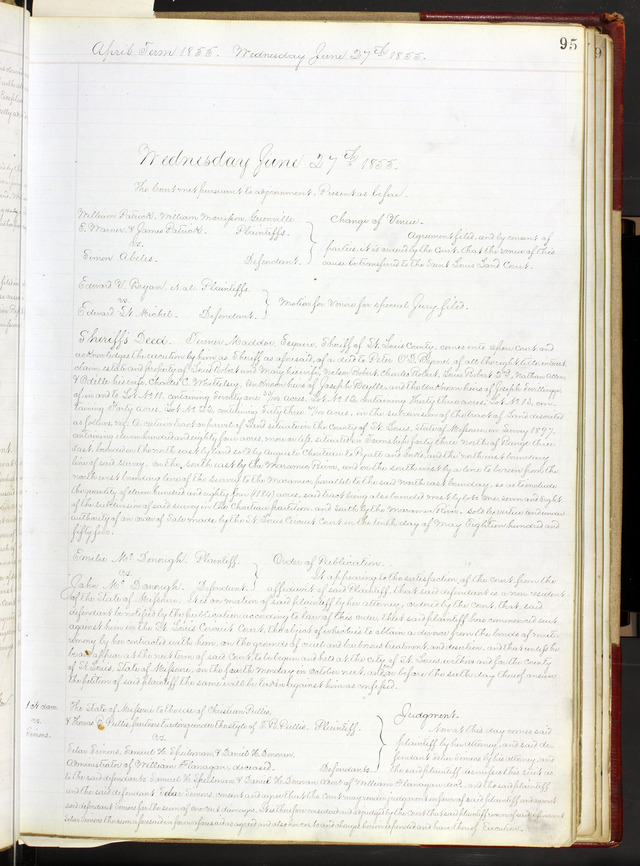 95
April Term 1855. Wednesday June 27th 1855.
Wednesday June 27th 1855.
The Court met pursuant to adjournment. Present as before.
William Patrick, William
E. Warner & James Patrick. Plaintiffs.
vs.
Simon Abeles. Defendant.
Change of Venue.
Agreement filed, and by consent of
parties, it is ordered by the Court, that the venue of this
cause be transferred to the Saint Louis Land Court.
Edward V. Bryan et al. Plaintiffs
vs.
Edward St. Michel. Defendant.
Motion for Venire for special Jury filed.
Sheriff's Deed. Turner Maddox, Esquire, Sheriff of St. Louis County, comes into open Court and
acknowledges the execution by him as Sheriff as aforesaid, of a deed to Peter of all the right, title, interest
claim, estate and property of Louis Robert and Mary his wife, Nelson Robert, Charles Robert, Louis Robert Nathan Allen
& Odelle his wife, Charles C. Whittelsey, unknown heirs of Joseph and the unknown heirs of Joseph
of in and to Lot No 11. containing acres, Lot No 12, containing thirty three acres, Lot No 13, con-
taining Forty acres, Lot No containing Sixty three acres, in the subdivision of the tract of Land described
as follows, A certain tract or parcel of Land situate in the County of St. Louis, State of Missouri in Survey
containing eleven hundred and eighty four acres, more or less, situated in Township forty three North of Range three
East, bounded on the north east by land sold by Auguste Chouteau to and the north west boundary
line of said survey, on the south east by the Maramec River, and on the south west by a line to be run from the
north west boundary line of the survey to the Maramec, parallel to the said North east boundary, so as to include
the quantity of eleven hundred and eighty four (1184) acres, said tract being also bounded west by lots seven and eight
of the subdivision of said survey in the Chouteau partition, and south by the Maramec River. sold by virtue and under
authority of an order of Sale made by the St. Louis Circuit Court on the tenth day of May Eighteen hundred and
fifty five.
Emelie McDonough. Plaintiff.
vs.
John McDonough. Defendant.
Order of Publication.
It appearing to the satisfaction of the court from the
affidavit of said Plaintiff, that said defendant is a non resident
of the State of Missouri. It is on motion of said plaintiff by her attorney, ordered by the Court that said
defendant be notified by the publication according to law of this order, that said plaintiff has commenced suit
against him in the St. Louis Circuit Court, the object of which is to obtain a divorce from the bonds of matri-
mony by her contracted with him, on the grounds of cruel and barbarous treatment, and desertion, and that unless he
be and appear at the next term of said Court, to be begun and held at the City of St. Louis, within and for the County
of St. Louis, State of Missouri, on the fourth Monday in October next, and on or before the sixth day thereof answer
the petition of said plaintiff the same will be taken against him as confessed.
1 ct dam.
vs.
Simons.
The State of Missouri to the use of Christian Pullis,
& Thomas R. Pullis, partners trading under the style of Pullis. Plaintiff.
vs.
Edar Simons, Samuel H. Spelman, & Daniel H. Donovan,
Administrator of William Flanagan, deceased. Defendants.
Judgment.
Now at this day comes said
plaintiff by his attorney, and said de-
fendant Edar Simons by his attorney, and
the said plaintiff dismisses this suit as
to the said defendants Samuel H. Spelman & Daniel H. Donovan Admr of William Flanagan decd. and the said plaintiff
and the said defendant Edar Simons, consent and agree that the Court may render judgment in favor of said plaintiff and against
said defendant Simons for the sum of one cent damages. It is therefore considered and adjudged by the Court that said plaintiff recover of said defendant
Edar Simons the sum aforesaid in form aforesaid as agreed and also her costs and charges herein expended and have thereof Execution.